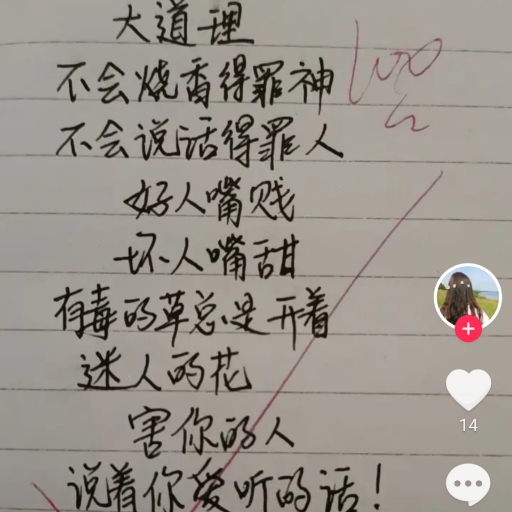 大道理
100分
不会烧香得罪神
不会说话得罪人
好人嘴贱
坏人嘴甜
有毒的草总是开着
迷人的花
害你的人
说着你爱听的话！
14